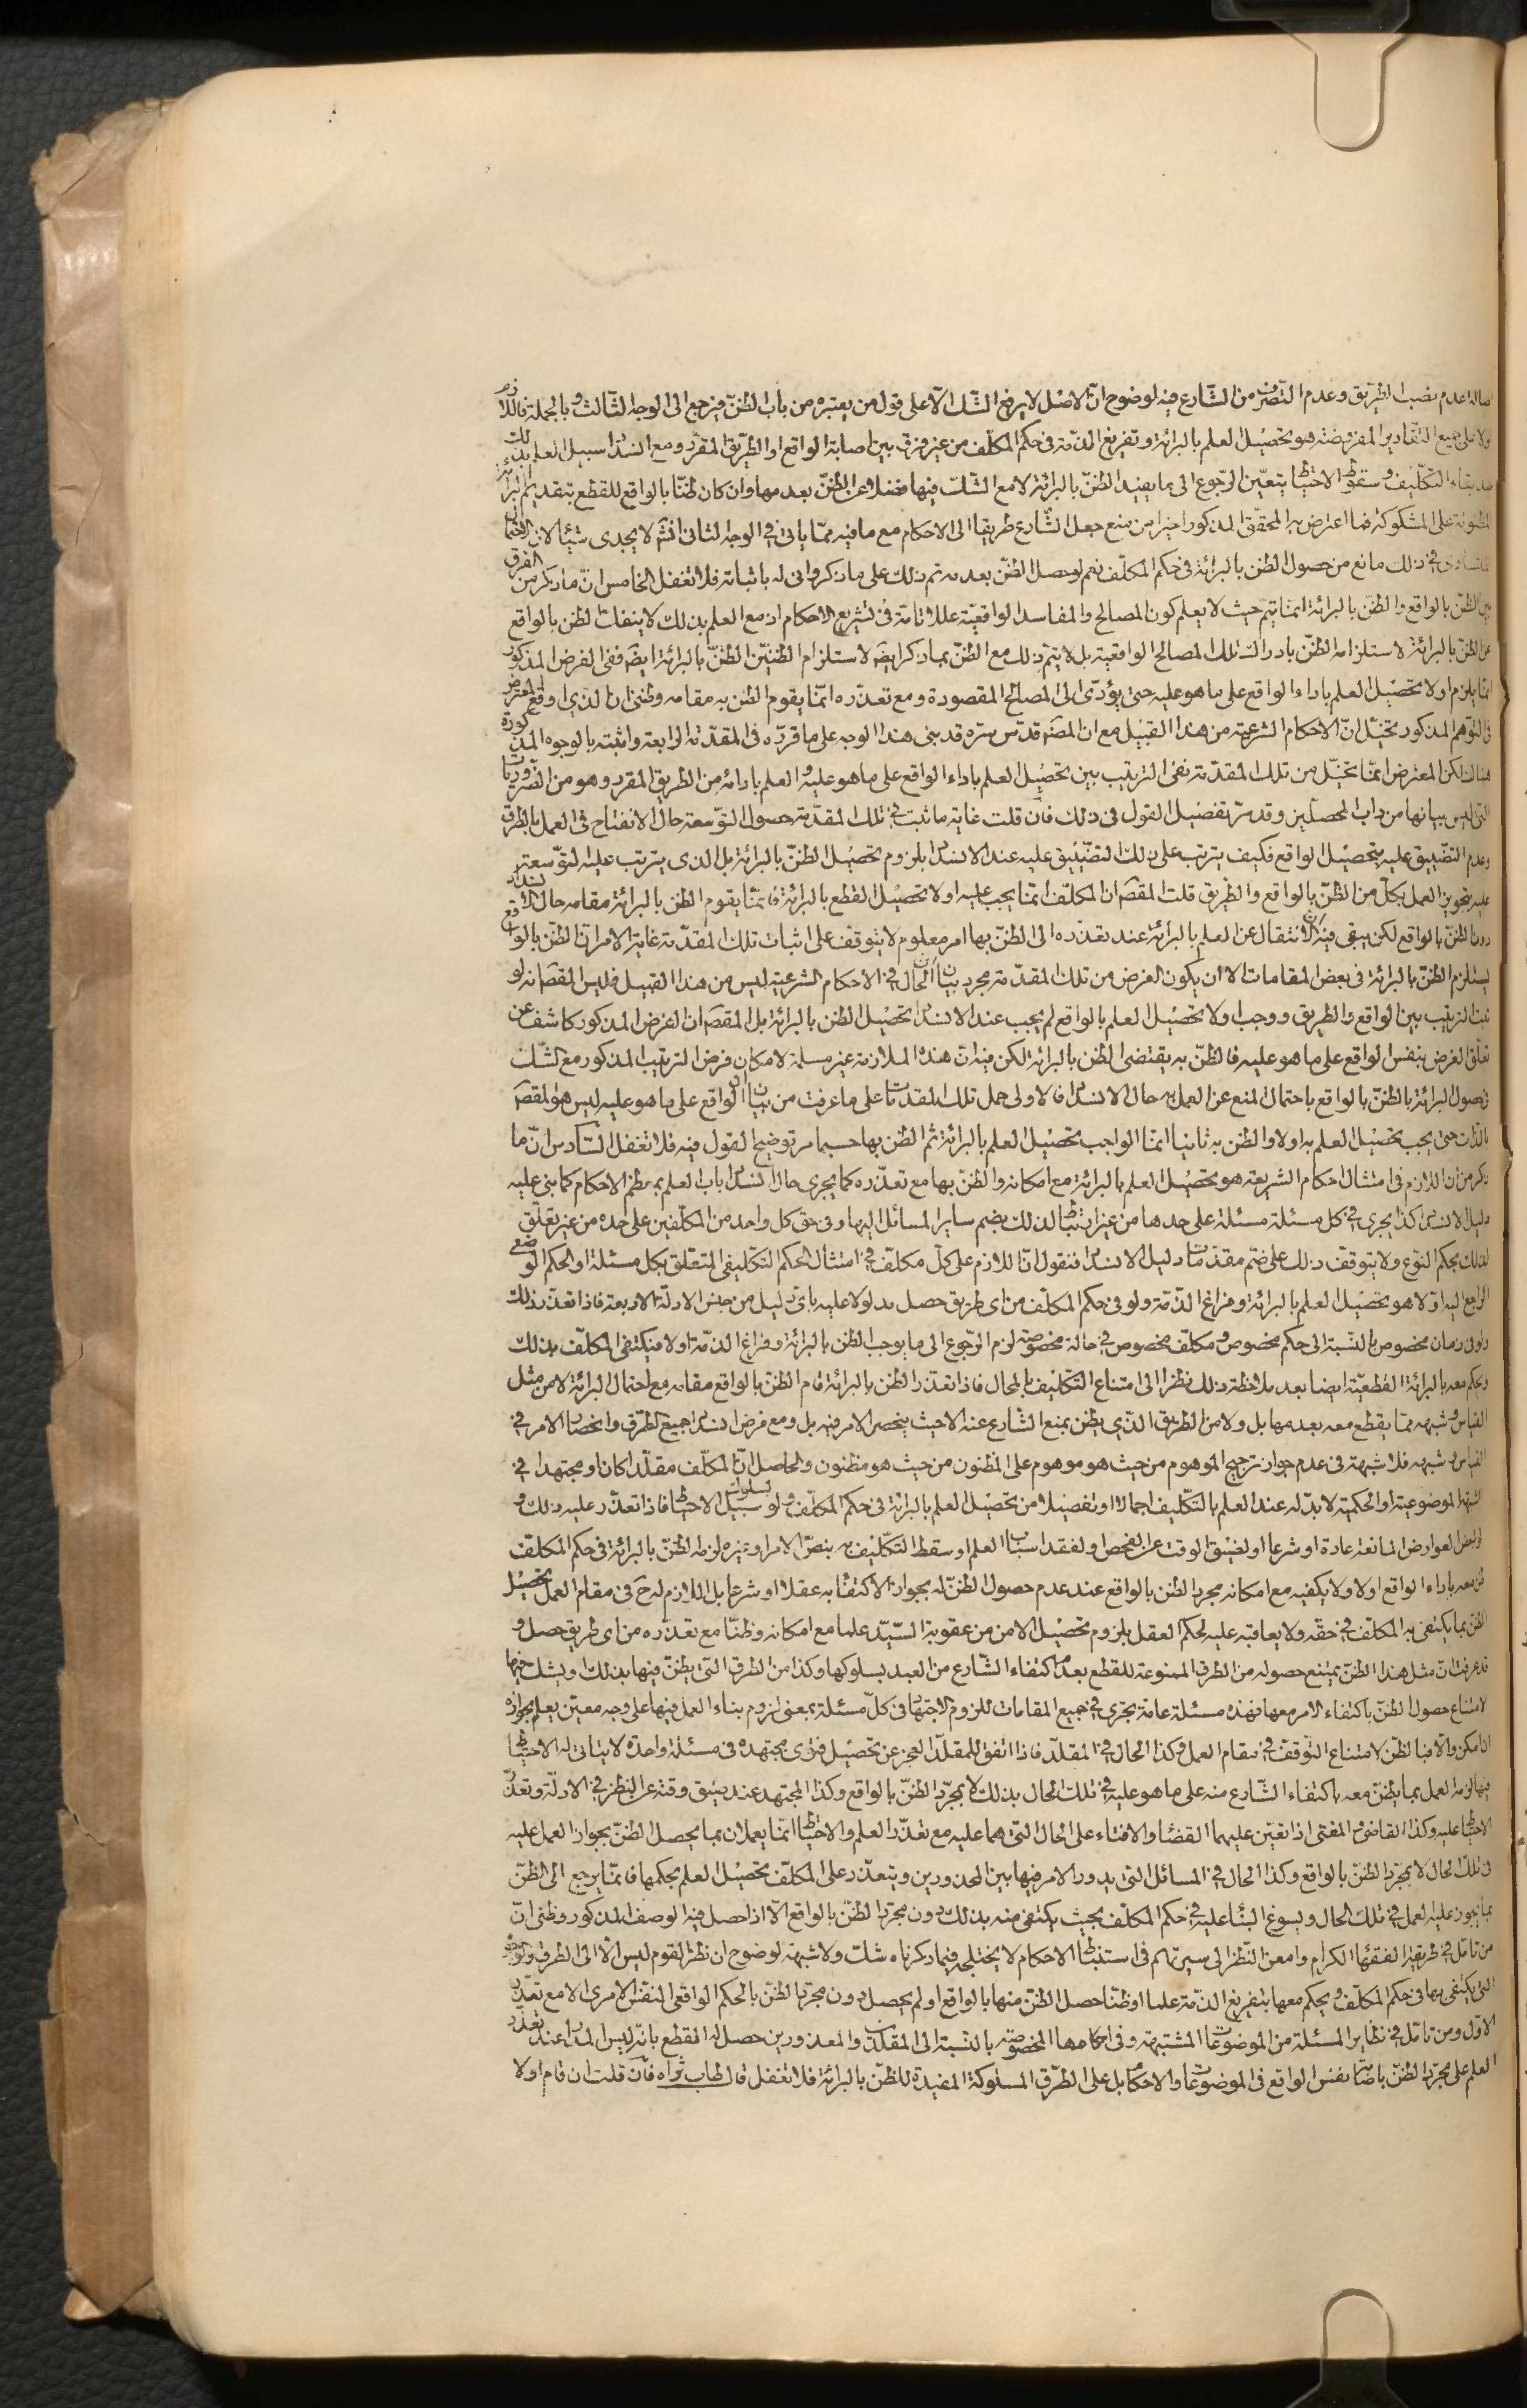 صالة عدم نصب الطريق وعدم التصرف من الشارع فيه لوضوح ان الاصل لا يرفع الشك الا على قول من يعتبره من باب الظن فيرجع الى الوجه الثالث وبالجملة فاللازم
اولا على جميع التقادير المفروضة هو تحصيل العلم بالبرائة وتفريغ الذمة فى حكم المكلف من غير فرق بين اصابة الواقع او الطريق المقرر ومع انسداد سبيل العلم بذلك
عند بقاء التكليف وسقوط الاحتياط يتعين الرجوع الى ما يفيد الظن بالبرائة لا مع الشك فيها فضلا عن الظن بعدمها وان كان ظنا بالواقع للقطع بتقديم البرائة
المظنونة على المشكوكة فما اعترض به المحقق المذكور اخيرا من منع جعل الشارع طريقا الى الاحكام مع ما فيه مما ياتى فى الوجه الثانى انش لا يجدى شيئا لان الاحتمال
المتساوى فى ذلك مانع من حصول الظن بالبرائة فى حكم المكلف نعم لو حصل الظن بعدمه تم ذلك على ما ذكر وانى له باثباته فلا تغفل الخامس ان ما ذكر من الفرق
بين الظن بالواقع والظن بالبرائة انما يتم حيث لا يعلم كون المصالح والمفاسد الواقعية عللا تامة فى تشريع الاحكام اذ مع العلم بذلك لا ينفك الظن بالواقع
عن الظن بالبرائة لاستلزامه الظن بادراك تلك المصالح الواقعية بل لا يتم ذلك مع الظن بما ذكر ايضا لاستلزام الظنين الظن بالبرائة ايضا ففى الفرض المذكور
انما يلزم اولا تحصيل العلم باداء الواقع على ما هو عليه حتى يؤدى الى المصالح المقصودة ومع تعذره انما يقوم الظن به مقامه وظنى ان الذى اوقع المعترض
فى التوهم المذكور تخيل ان الاحكام الشرعية من هذا القبيل مع ان المصنف قدس سره قد بنى هذا الوجه على ما قرره فى المقدمة الرابعة واثبته بالوجوه المذكورة
هنالك لكن المعترض انما تخيل من تلك المقدمة نفى الترتيب بين تحصيل العلم باداء الواقع على ما هو عليه والعلم بادائه من الطريق المقرر وهو من الضروريات
التى ليس بيانها من داب المحصلين وقد مر تفصيل القول فى ذلك فان قلت غاية ما ثبت فى تلك المقدمة حصول التوسعة حال الانفتاح فى العمل بالطرق
وعدم التضييق عليه بتحصيل الواقع فكيف يترتب على ذلك التضييق عليه عند الانسداد بلزوم تحصيل الظن بالبرائة بل الذى يترتب عليه التوسعة
عليه بتجويز العمل بكل من الظن بالواقع والطريق قلت المقصود ان المكلف انما يجب عليه اولا تحصيل القطع بالبرائة فانما يقوم الظن بالبرائة مقامه حال الانسداد
دون الظن بالواقع لكن يبقى فيه ان الانتقال عن العلم بالبرائة عند تعذره الى الظن بها امر معلوم لا يتوقف على اثبات تلك المقدمة غاية الامر ان الظن بالواقع
يستلزم الظن بالبرائة فى بعض المقامات الا ان يكون الغرض من تلك المقدمة مجرد بيان ان الحال فى الاحكام الشرعية ليس من هذا القبيل فليس المقصود انه لو
ثبت الترتيب بين الواقع والطريق ووجب اولا تحصيل العلم بالواقع لم يجب عند الانسداد تحصيل الظن بالبرائة بل المقصود ان الفرض المذكور كاشف عن
تعلق الغرض بنفس الواقع على ما هو عليه فالظن به يقتضى الظن بالبرائة لكن فيه ان هذه الملازمة غير مسلمة لامكان فرض الترتيب المذكور مع الشك
فى حصول البرائة بالظن بالواقع باحتمال المنع عن العمل به حال الانسداد فالاولى حمل تلك المقدمات على ما عرفت من بيان ان الواقع على ما هو عليه ليس هو المقصود
بالذات حتى يجب تحصيل العلم به اولا والظن به ثانيا انما الواجب تحصيل العلم بالبرائة ثم الظن بها حسبما مر توضيح القول فيه فلا تغفل السادس ان ما
ذكر من ان اللازم فى امتثال احكام الشريعة هو تحصيل العلم بالبرائة مع امكانه والظن بها مع تعذره كما يجرى حال انسداد باب العلم بمعظم الاحكام كما بنى عليه
دليل الانسداد كذا يجرى فى كل مسئلة مسئلة على حدها من غير ارتباط لذلك بضم ساير المسائل اليها وفى حق كل واحد من المكلفين على حده من غير تعلق
لذلك بحكم النوع ولا يتوقف ذلك على ضم مقدمات دليل الانسداد فنقول ان اللازم على كل مكلف فى امتثال الحكم التكليفى المتعلق بكل مسئلة او الحكم الوضعى
الراجع اليه اولا هو تحصيل العلم بالبرائة وفراغ الذمة ولو فى حكم المكلف من اى طريق حصل مدلولا عليه باى دليل من جنس الادلة الاربعة فاذا تعذر ذلك
ولو فى زمان مخصوص بالنسبة الى حكم مخصوص ومكلف مخصوص فى حالة مخصوصة لزم الرجوع الى ما يوجب الظن بالبرائة وفراغ الذمة اولا فيكتفى المكلف بذلك
ويحكم معه بالبرائة القطعية ايضا بعد ملاحظة ذلك نظرا الى امتناع التكليف بالمحال فاذا تعذر الظن بالبرائة قام الظن بالواقع مقامه مع احتمال البرائة لا من مثل
القياس وشبهه مما يقطع معه بعدمها بل ولا من الطريق الذى يظن بمنع الشارع عنه الا حيث ينحصر الامر فيه بل ومع فرض انسداد جميع الطرق وانحصار الامر فى
القياس وشبهه فلا شبهة فى عدم جواز ترجيح الموهوم من حيث هو موهوم على المظنون من حيث هو مظنون والحاصل ان المكلف مقلدا كان او مجتهدا فى
الشبهة الموضوعية او الحكمية لا بد له عند العلم بالتكليف اجمالا او تفصيلا من تحصيل العلم بالبرائة فى حكم المكلف ولو بسلوك سبيل الاحتياط فاذا تعذر عليه ذلك و
لو لبعض العوارض المانعة عادة او شرعا او لضيق الوقت عن الفحص او لفقد اسباب العلم او سقط التكليف به بنص الامر او غيره لزمه الظن بالبرائة فى حكم المكلف
لمن معه باداء الواقع اولا ولا يكفيه مع امكانه مجرد الظن بالواقع عند عدم حصول الظن له بجواز الاكتفاء به عقلا او شرعا بل اللازم له ح فى مقام العمل تحصيل
الظن بما يكتفى به المكلف فى حقه ولا يعاقبه عليه لحكم العقل بلزوم تحصيل الامن من عقوبة السيد علما مع امكانه وظنا مع تعذره من اى طريق حصل و
قد عرفت ان مثل هذا الظن يمتنع حصوله من الطرق الممنوعة للقطع بعدم اكتفاء الشارع من العبد بسلوكها وكذا من الطرق التى يظن فيها بذلك او يشك فيها
لامتناع حصول الظن باكتفاء الامر معها فهذه مسئلة عامة تجرى فى جميع المقامات للزوم الاجتهاد فى كل مسئلة بمعنى لزوم بناء العمل فيها على وجه معين يعلم بجوازه
ان امكن والا فبالظن لامتناع التوقف فى مقام العمل وكذا الحال فى المقلد فاذا اتفق للمقلد العجز عن تحصيل فتوى مجتهده فى مسئلة واحدة لا يتاتى له الاحتياط
فيها لزمه العمل بما يظن معه باكتفاء الشارع منه على ما هو عليه فى تلك الحال بذلك لا بمجرد الظن بالواقع وكذا المجتهد عند ضيق وقته عن النظر فى الادلة وتعذر
الاحتياط عليه وكذا القاضى والمفتى اذا تعين عليهما القضاء والافتاء على الحال التى هما عليه مع تعذر العلم والاحتياط انما يعملان بما يحصل الظن بجواز العمل عليه
فى تلك الحال لا بمجرد الظن بالواقع وكذا الحال فى المسائل التى يدور الامر فيها بين المحذورين ويتعذر على المكلف تحصيل العلم بحكمها فانما يرجع الى الظن
بما يجوز عليه العمل فى تلك الحال ويسوغ البناء عليه فى حكم المكلف بحيث يكتفى منه بذلك دون مجرد الظن بالواقع الا اذا حصل فيه الوصف المذكور وظنى ان
من تامل فى طريقة الفقهاء الكرام وامعن النظر فى سيرتهم فى استنباط الاحكام لا يختلجه فيما ذكرناه شك ولا شبهة لوضوح ان نظر القوم ليس الا الى الطرق والوجوه
التى يكتفى بها فى حكم المكلف ويحكم معها بتفريغ الذمة علما او ظنا حصل الظن منها بالواقع او لم يحصل دون مجرد الظن بالحكم الواقعى النفس الامرى الا مع تعذر
الاول ومن تامل فى نظاير المسئلة من الموضوعات المشتبهة وفى احكامها المخصوصة بالنسبة الى المقلد والمعذورين حصل له القطع بانه ليس المدار عند تعذر
العلم على مجرد الظن باصابة نفس الواقع فى الموضوعات والاحكام بل على الطرق المسلوكة المفيدة للظن بالبرائة فلا تغفل قال طاب ثراه فان قلت ان قام اولا